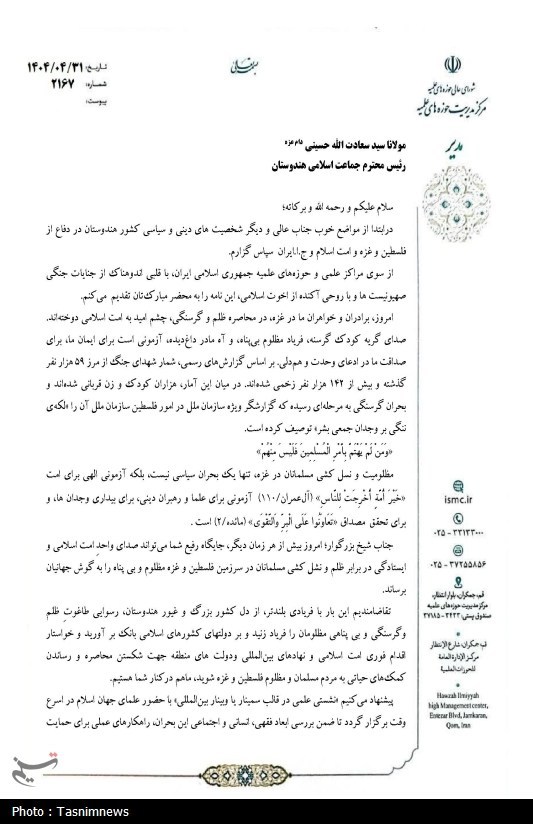 تاریخ: ۱۴۰۴/۰۴/۳۱
شماره: ۲۱۶۷
پیوست:
شورای عالی حوزه های علمیه
مرکز مدیریت حوزه های علمیه
مدیر
مولانا سید سعادت الله حسینی دام عزه
رئیس محترم جماعت اسلامی هندوستان
سلام علیکم و رحمه الله و برکاته؛
درابتدا از مواضع خوب جناب عالی و دیگر شخصیت های دینی و سیاسی کشور هندوستان در دفاع از
فلسطین و غزه و امت اسلام و ج.ا.ایران سپاس گزارم.
از سوی مراکز علمی و حوزه‌های علمیه جمهوری اسلامی ایران، با قلبی اندوهناک از جنایات جنگی
صهیونیست ها و با روحی آکنده از اخوت اسلامی، این نامه را به محضر مبارک‌تان تقدیم می‌کنم.
امروز، برادران و خواهران ما در غزه، در محاصره ظلم و گرسنگی، چشم امید به امت اسلامی دوخته‌اند.
صدای گریه کودک گرسنه، فریاد مظلوم بی‌پناه، و آه مادر داغ‌دیده، آزمونی است برای ایمان ما، برای
صداقت ما در ادعای وحدت و هم‌دلی. بر اساس گزارش‌های رسمی، شمار شهدای جنگ از مرز ۵۹ هزار نفر
گذشته و بیش از ۱۴۲ هزار نفر زخمی شده‌اند. در میان این آمار، هزاران کودک و زن قربانی شده‌اند و
بحران گرسنگی به مرحله‌ای رسیده که گزارشگر ویژه سازمان ملل در امور فلسطین سازمان ملل آن را «لکه‌ی
ننگی بر وجدان جمعی بشر» توصیف کرده است.
«وَمَنْ لَمْ یَهْتَمْ بِأَمْرِ الْمُسْلِمِینَ فَلَیْسَ مِنْهُمْ»
مظلومیت و نسل کشی مسلمانان در غزه، تنها یک بحران سیاسی نیست، بلکه آزمونی الهی برای امت
«خَیْرَ أُمَّةٍ أُخْرِجَتْ لِلنَّاسِ» (آل‌عمران/۱۱۰) آزمونی برای علما و رهبران دینی، برای بیداری وجدان ها، و
برای تحقق مصداق «تَعَاوَنُوا عَلَی الْبِرِّ وَالتَّقْوَی» (مائده/۲) است .
جناب شیخ بزرگوار؛ امروز بیش از هر زمان دیگر، جایگاه رفیع شما می‌تواند صدای واحدِ امت اسلامی و
ایستادگی در برابر ظلم و نشل کشی مسلمانان در سرزمین فلسطین و غزه مظلوم و بی پناه را به گوش جهانیان
برساند.
تقاضامندیم این بار با فریادی بلندتر، از دل کشور بزرگ و غیور هندوستان، رسوایی طاغوتِ ظلم
وگرسنگی و بی پناهی مظلومان را فریاد زنید و بر دولتهای کشورهای اسلامی بانک بر آورید و خواستار
اقدام فوری امت اسلامی و نهادهای بین‌المللی ودولت های منطقه جهت شکستن محاصره و رساندن
کمک‌های حیاتی به مردم مسلمان و مظلوم فلسطین و غزه شوید، ماهم درکنار شما هستیم.
پیشنهاد می‌کنیم «نشستی علمی در قالب سمینار یا وبینار بین‌المللی» با حضور علمای جهان اسلام در اسرع
وقت برگزار گردد تا ضمن بررسی ابعاد فقهی، انسانی و اجتماعی این بحران، راهکارهای عملی برای حمایت
ismc.ir
۰۲۵ - ۳۲۱۳۳۰۰۰
۰۲۵ - ۳۷۲۵۵۸۵۶
قم، جمکران، بلوار انتظار،
مرکز مدیریت حوزه های علمیه
صندوق پستی: ۳۴۳۳ - ۳۷۱۸۵
قم، جمکران، شارع الإنتظار
مرکز الإدارة العامة
للحوزات العلمیة
Hawzah Ilmiyyah
high Management center,
Entezar Blvd, Jamkaran,
Qom, Iran
تسنیم
Photo : Tasnimnews